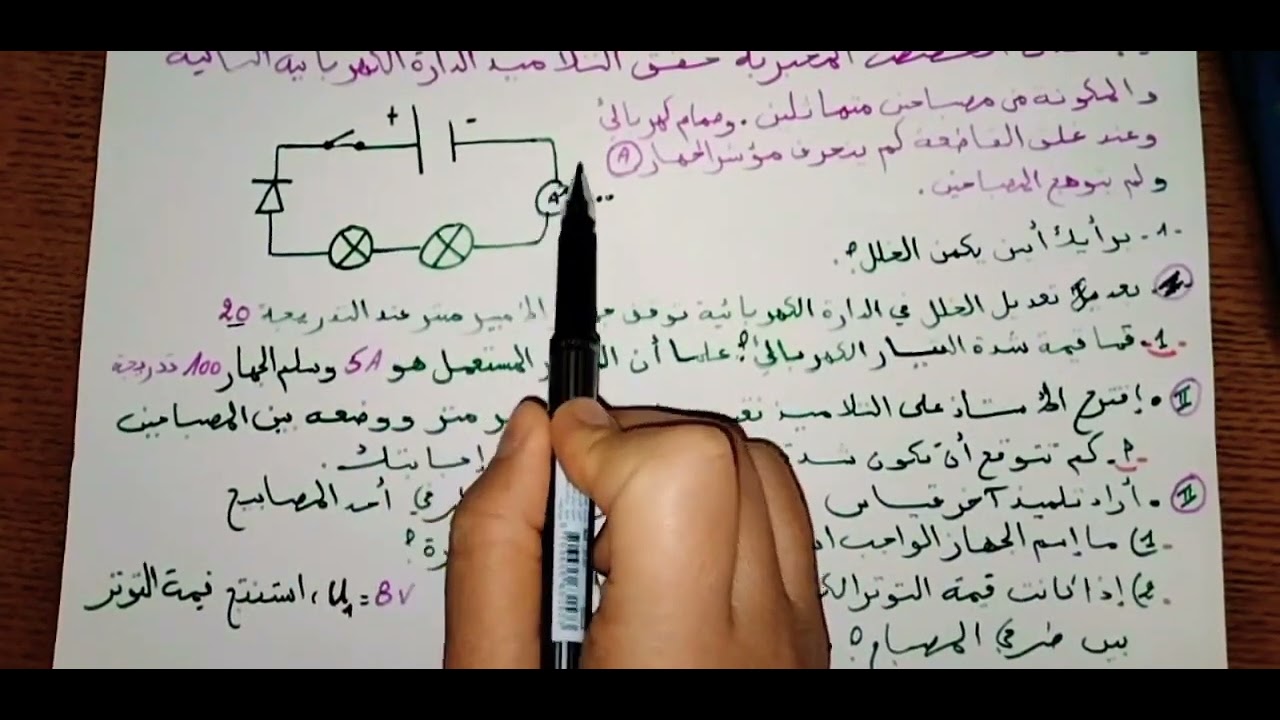 المخبرية حقق التلاميذ الدارة الكهربائية التالية
والمكونة من مصباحين متماثلين. وصمام كهربائي
وعند غلق القاطعة لم ينحرف مؤشر الجهاز A
ولم يتوهج المصباحين.
+ -
A
1- برأيك أين يكمن الخلل؟
تعديل الخلل في الدارة الكهربائية توقف عند التدريجة 20
1- فما قيمة شدة التيار الكهربائي؟ علما أن المستعمل هو 5A وسلم الجهاز 100 تدريجة
II • إقترح الأستاذ على التلاميذ متر ووضعه بين المصباحين
م. كم تتوقع أن تكون إجابتك.
II • أراد تلميذ آخر قياس في أحد المصابيح
1) ما إسم الجهاز الواجب
2) إذا كانت قيمة التوتر U1=8V، استنتج قيمة التوتر
بين طرفي المصباح؟